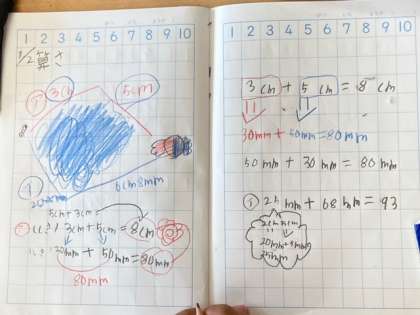 1 2 3 4 5 6 7 8 9 10
1/2 算さ
3cm 5cm
①
6cm8mm
5cm+3cm
3cm+5cm=8cm
30mm+50mm=80mm
80mm
1 2 3 4 5 6 7 8 9 10
3cm+5cm=8cm
30mm+50mm=80mm
50mm+30mm=80mm
① 25mm+68mm=93
20mm+5mm
25mm